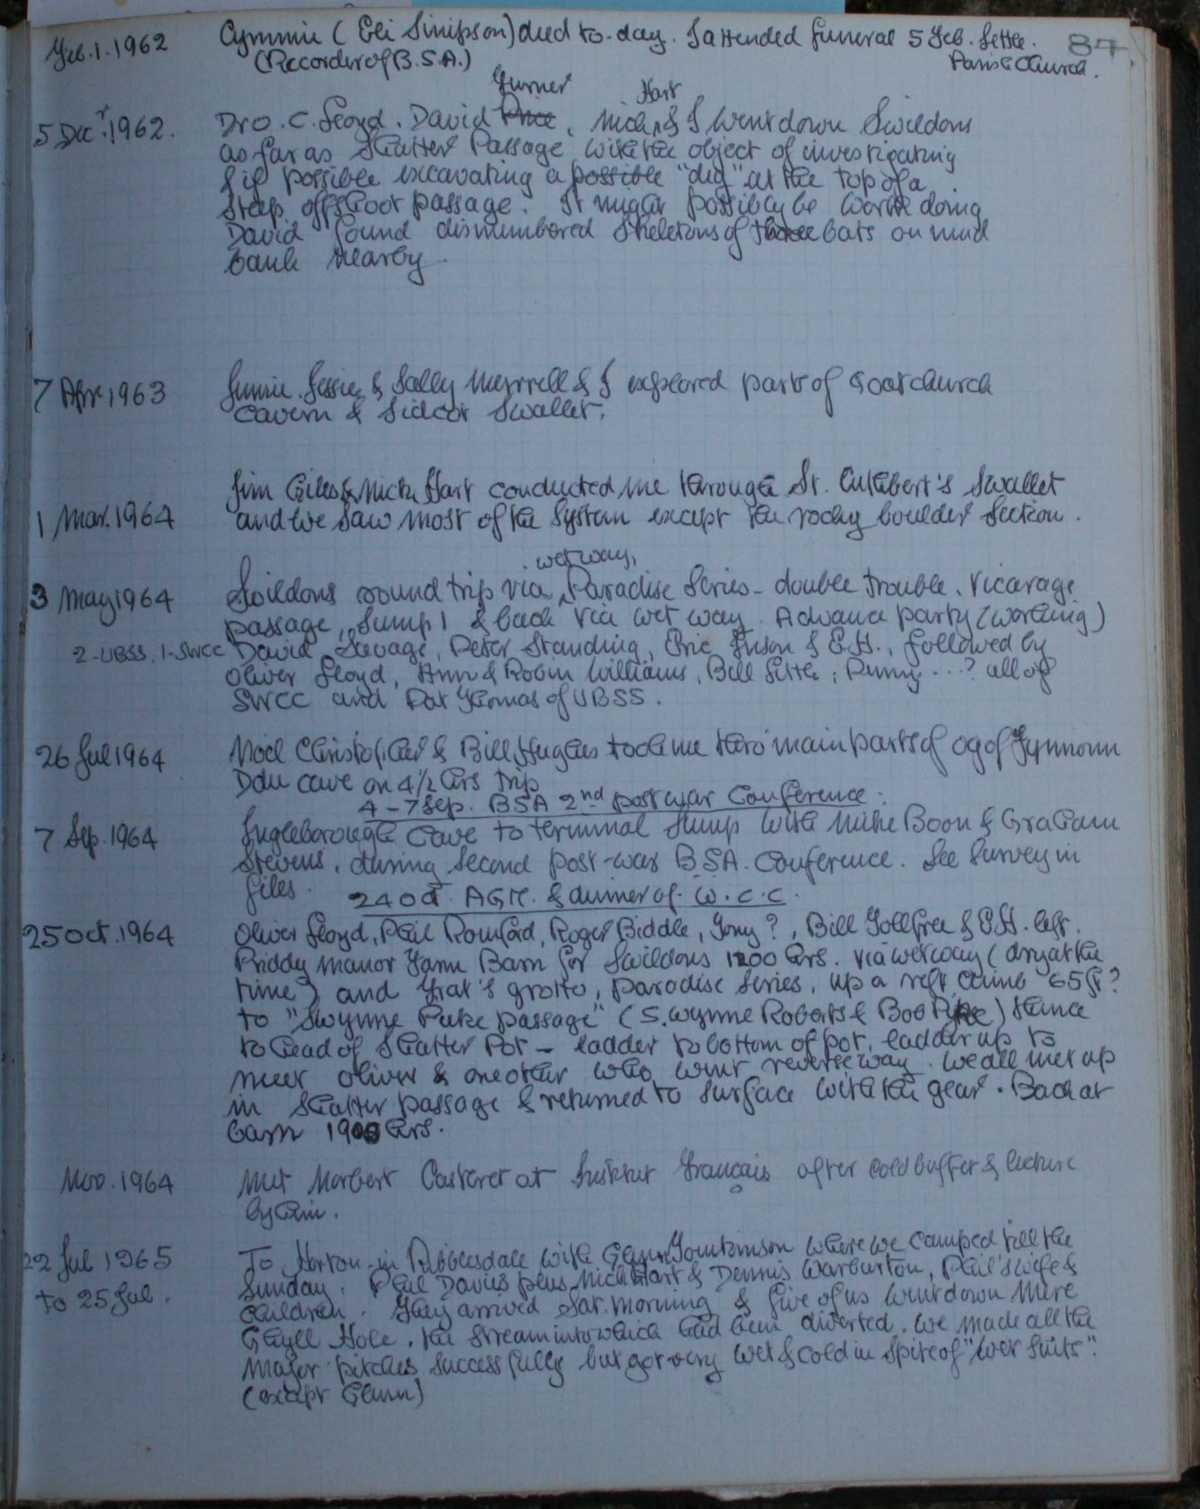 Feb. 1. 1962 Cymmie (Eli Simpson) died to-day. I attended funeral 5 Feb. Settle. 87
(Recorder of B.S.A.) Parish Church.
Turner Hart
5 Dec. 1962. Dr O. C. Lloyd. David Price, Nick & I went down Swildons
as far as Shatter Passage with the object of investigating
& if possible excavating a possible "dig" at the top of a
steep offshoot passage. It might possibly be worth doing
David found dismembered skeletons of three bats on mud
bank nearby.
7 Apr 1963 Jessie & Sally Merrell & I explored part of Goatchurch
Cavern & Sidcot Swallet.
Jim Giles & Nick Hart conducted me through St. Cuthbert's Swallet
1 Mar. 1964 and we saw most of the system except the rocky boulder section.
wet way,
3 May 1964 Swildons round trip via Paradise Series - double trouble. Vicarage
passage, Sump 1 & back via wet way. Advance party (working)
2-UBSS. 1-SWCC David Savage, Peter Standing, Eric & E.H., followed by
Oliver Lloyd, Ann & Robin Williams, Bill Little, ...? all of
SWCC and Pat Thomas of UBSS.
26 Jul 1964 Noel Christopher & Bill Hughes took me thro' main parts of ogof Ffynnonn
Ddu cave on 4½ hrs trip
4-7 Sep. BSA 2nd post war Conference.
7 Sep. 1964 Ingleborough Cave to terminal Sump with Mike Boon & Graham
Stevens, during second post-war B.S.A. Conference. See Survey in
files. 24 Oct. AGM. & dinner of. W.C.C.
25 Oct. 1964 Oliver Lloyd, Phil Romford, Roger Biddle, Tony?, Bill Tolfree & E.H. left.
Priddy Manor Farm Barn for Swildons 1200 hrs. via wet way (dry at the
time) and Trat's grotto, paradise series, up a rift climb 65 ft?
to "Swynne Puke passage" (S. Wynne Roberts & Bob Pyke) thence
to head of Shatter Pot - ladder to bottom of pot, ladder up to
meet Oliver & one other who went reverse way. we all met up
in Shatter passage & returned to surface with the gear. Back at
barn 1900 hrs.
Nov. 1964 Met Norbert Casteret at Institut Français after cold buffet & lecture
by him.
22 Jul 1965 To Horton-in Ribblesdale with Glynn Tomkinson where we camped till the
Sunday. Phil Davies plus Nick Hart & Dennis Warburton, Phil's wife &
to 25 Jul. children. They arrived Sat. morning & five of us went down Mere
Ghyll Hole, the stream into which had been diverted. we made all the
major pitches successfully but got very wet & cold in spite of "wet suits".
(except Glynn)